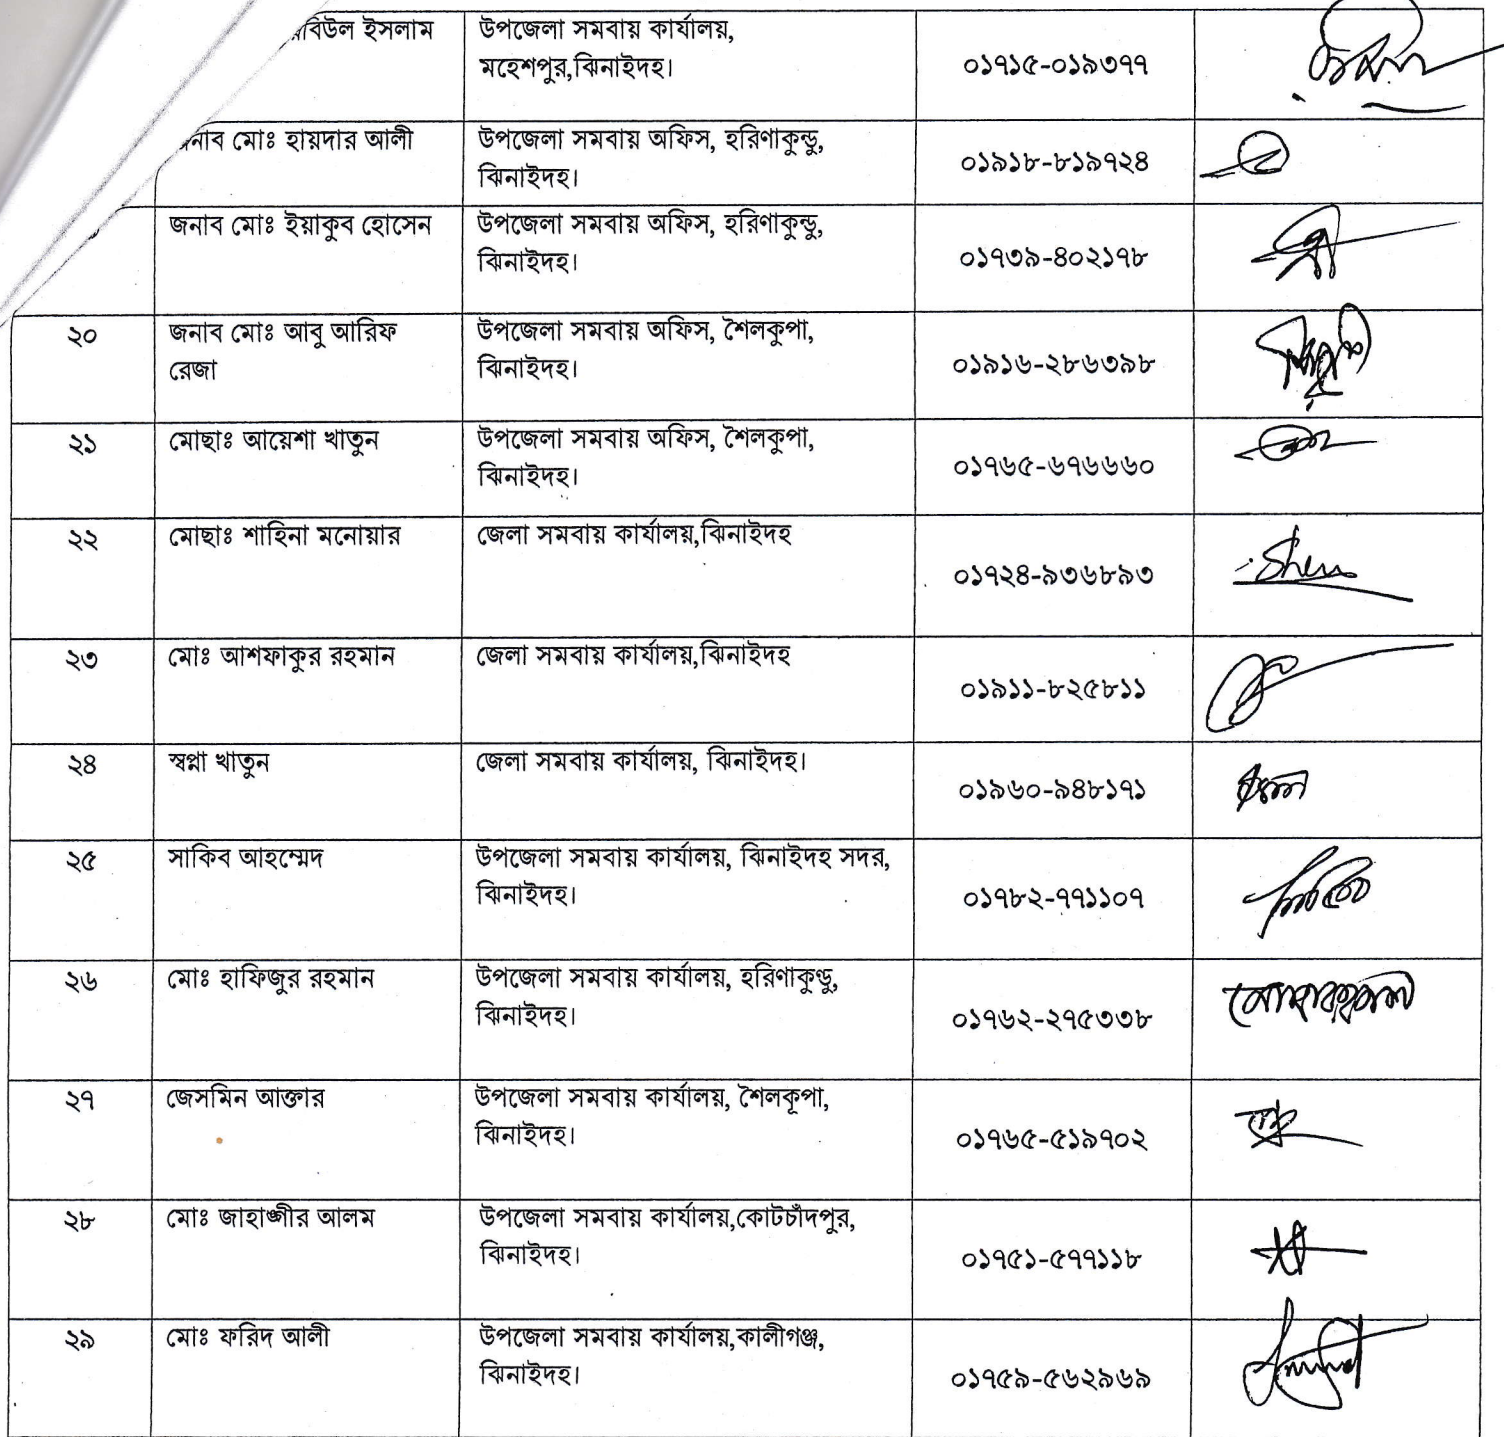 উপজেলা সমবায় কার্যালয়,
বিউল ইসলাম
মহেশপুর,ঝিনাইদহ।
০১৭১৫-০১৯৩৭৭
নাব মোঃ হায়দার আলী
উপজেলা সমবায় অফিস, হরিণাকুন্ডু,
ঝিনাইদহ।
০১৯১৮-৮১৯৭২৪
জনাব মোঃ ইয়াকুব হোসেন
উপজেলা সমবায় অফিস, হরিণাকুন্ডু,
ঝিনাইদহ।
০১৭৩৯-৪০২১৭৮
২০
জনাব মোঃ আবু আরিফ
রেজা
উপজেলা সমবায় অফিস, শৈলকুপা,
ঝিনাইদহ।
০১৯১৬-২৮৬৩৯৮
২১
মোছাঃ আয়েশা খাতুন
উপজেলা সমবায় অফিস, শৈলকুপা,
ঝিনাইদহ।
০১৭৬৫-৬৭৬৬৬০
২২
মোছাঃ শাহিনা মনোয়ার
জেলা সমবায় কার্যালয়,ঝিনাইদহ
০১৭২৪-৯৩৬৮৯৩
২৩
মোঃ আশফাকুর রহমান
জেলা সমবায় কার্যালয়,ঝিনাইদহ
০১৯১১-৮২৫৮১১
২৪
স্বপ্না খাতুন
জেলা সমবায় কার্যালয়, ঝিনাইদহ।
০১৯৬০-৯৪৮১৭১
২৫
সাকিব আহম্মেদ
উপজেলা সমবায় কার্যালয়, ঝিনাইদহ সদর,
ঝিনাইদহ।
০১৭৮২-৭৭১১০৭
২৬
মোঃ হাফিজুর রহমান
উপজেলা সমবায় কার্যালয়, হরিণাকুণ্ডু,
ঝিনাইদহ।
০১৭৬২-২৭৫৩৩৮
২৭
জেসমিন আক্তার
উপজেলা সমবায় কার্যালয়, শৈলকূপা,
ঝিনাইদহ।
০১৭৬৫-৫১৯৭০২
২৮
মোঃ জাহাঙ্গীর আলম
উপজেলা সমবায় কার্যালয়,কোটচাঁদপুর,
ঝিনাইদহ।
০১৭৫১-৫৭৭১১৮
২৯
মোঃ ফরিদ আলী
উপজেলা সমবায় কার্যালয়,কালীগঞ্জ,
ঝিনাইদহ।
০১৭৫৯-৫৬২৯৬৯